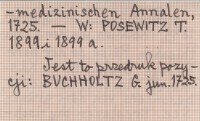 -medizinischen Annalen,
1725. — W: POSEWITZ T.
1899 i 1899 a.
Jest to przedruk pozy-
cji: BUCHHOLTZ G. jun. 1725.